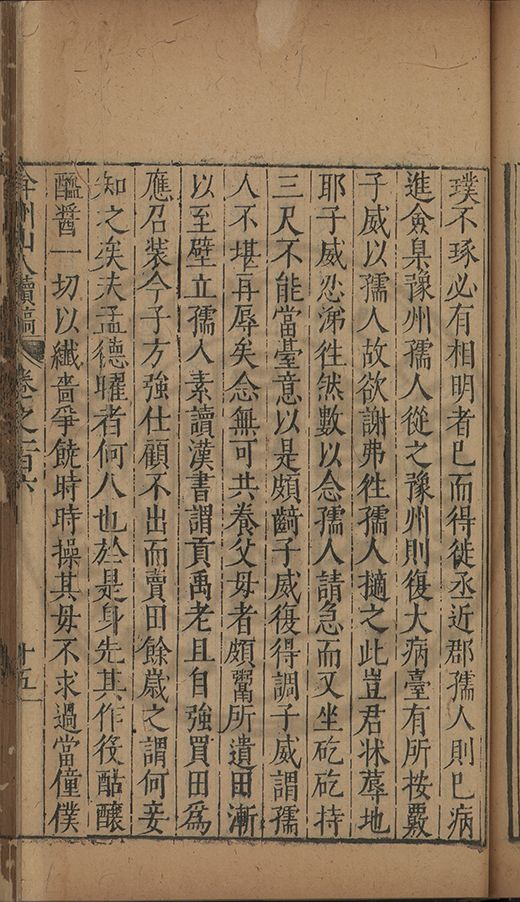 璞不琢必有相明者巳而得徙丞近郡孺人則巳病
進僉臬豫州孺人從之豫州則復大病臺有所按覈
子威以孺人故欲謝弗徃孺人擿之此豈君牀蓐地
耶子威忍涕徃然數以念孺人請急而又坐矻矻持
三尺不能當臺意以是頗齮子威復得調子威謂孺
人不堪再辱矣念無可共養父母者頗鬻所遺田漸
以至壁立孺人素讀漢書謂貢禹老且自強買田爲
應召裝今子方強仕顧不出而賣田餘歲之謂何妾
知之矣夫孟德曜者何人也於是身先其作後酤釀
醯醬一切以纖嗇爭饒時時操其毋不求過當僮僕
弇州山人續稿 卷之一百六 十五